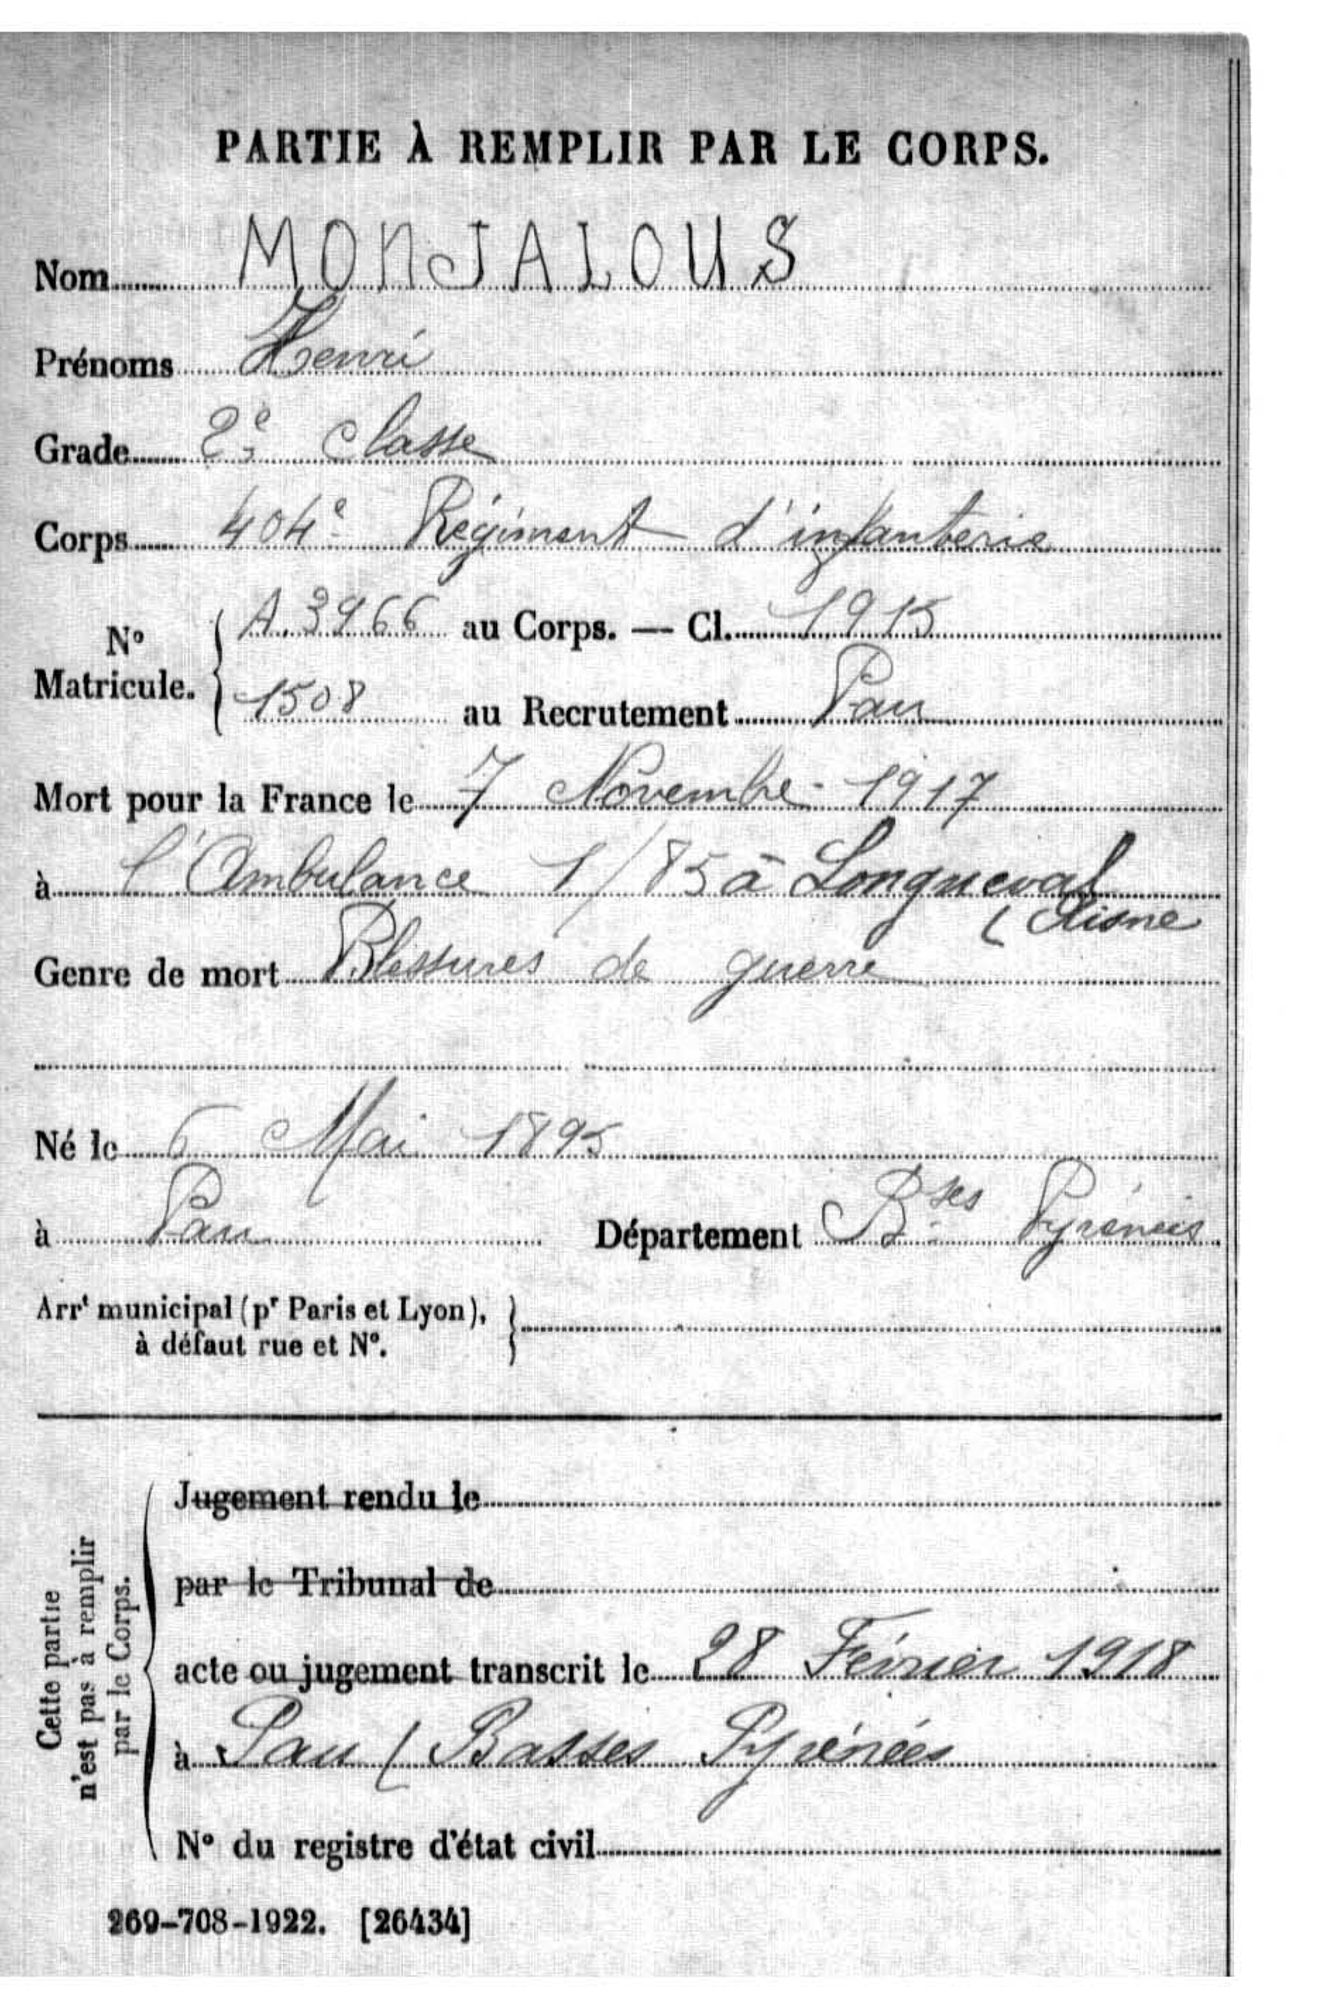 PARTIE À REMPLIR PAR LE CORPS.
Nom MONJALOUS
Prénoms Henri
Grade 2e classe
Corps 404e Régiment d'infanterie
N° Matricule. { A.3966 au Corps. — Cl. 1915
1508 au Recrutement Pau
Mort pour la France le 7 Novembre 1917
à l'Ambulance 1/85 à Longueval
( Aisne
Genre de mort Blessures de guerre
Né le 6 Mai 1895
à Pau Département Bses Pyrénées
Arrt municipal (pr Paris et Lyon), }
à défaut rue et N°.
Cette partie
n'est pas à remplir
par le Corps.
Jugement rendu le
par le Tribunal de
acte ou jugement transcrit le 28 Février 1918
à Pau ( Basses Pyrénées
N° du registre d'état civil
269-708-1922. [26434]